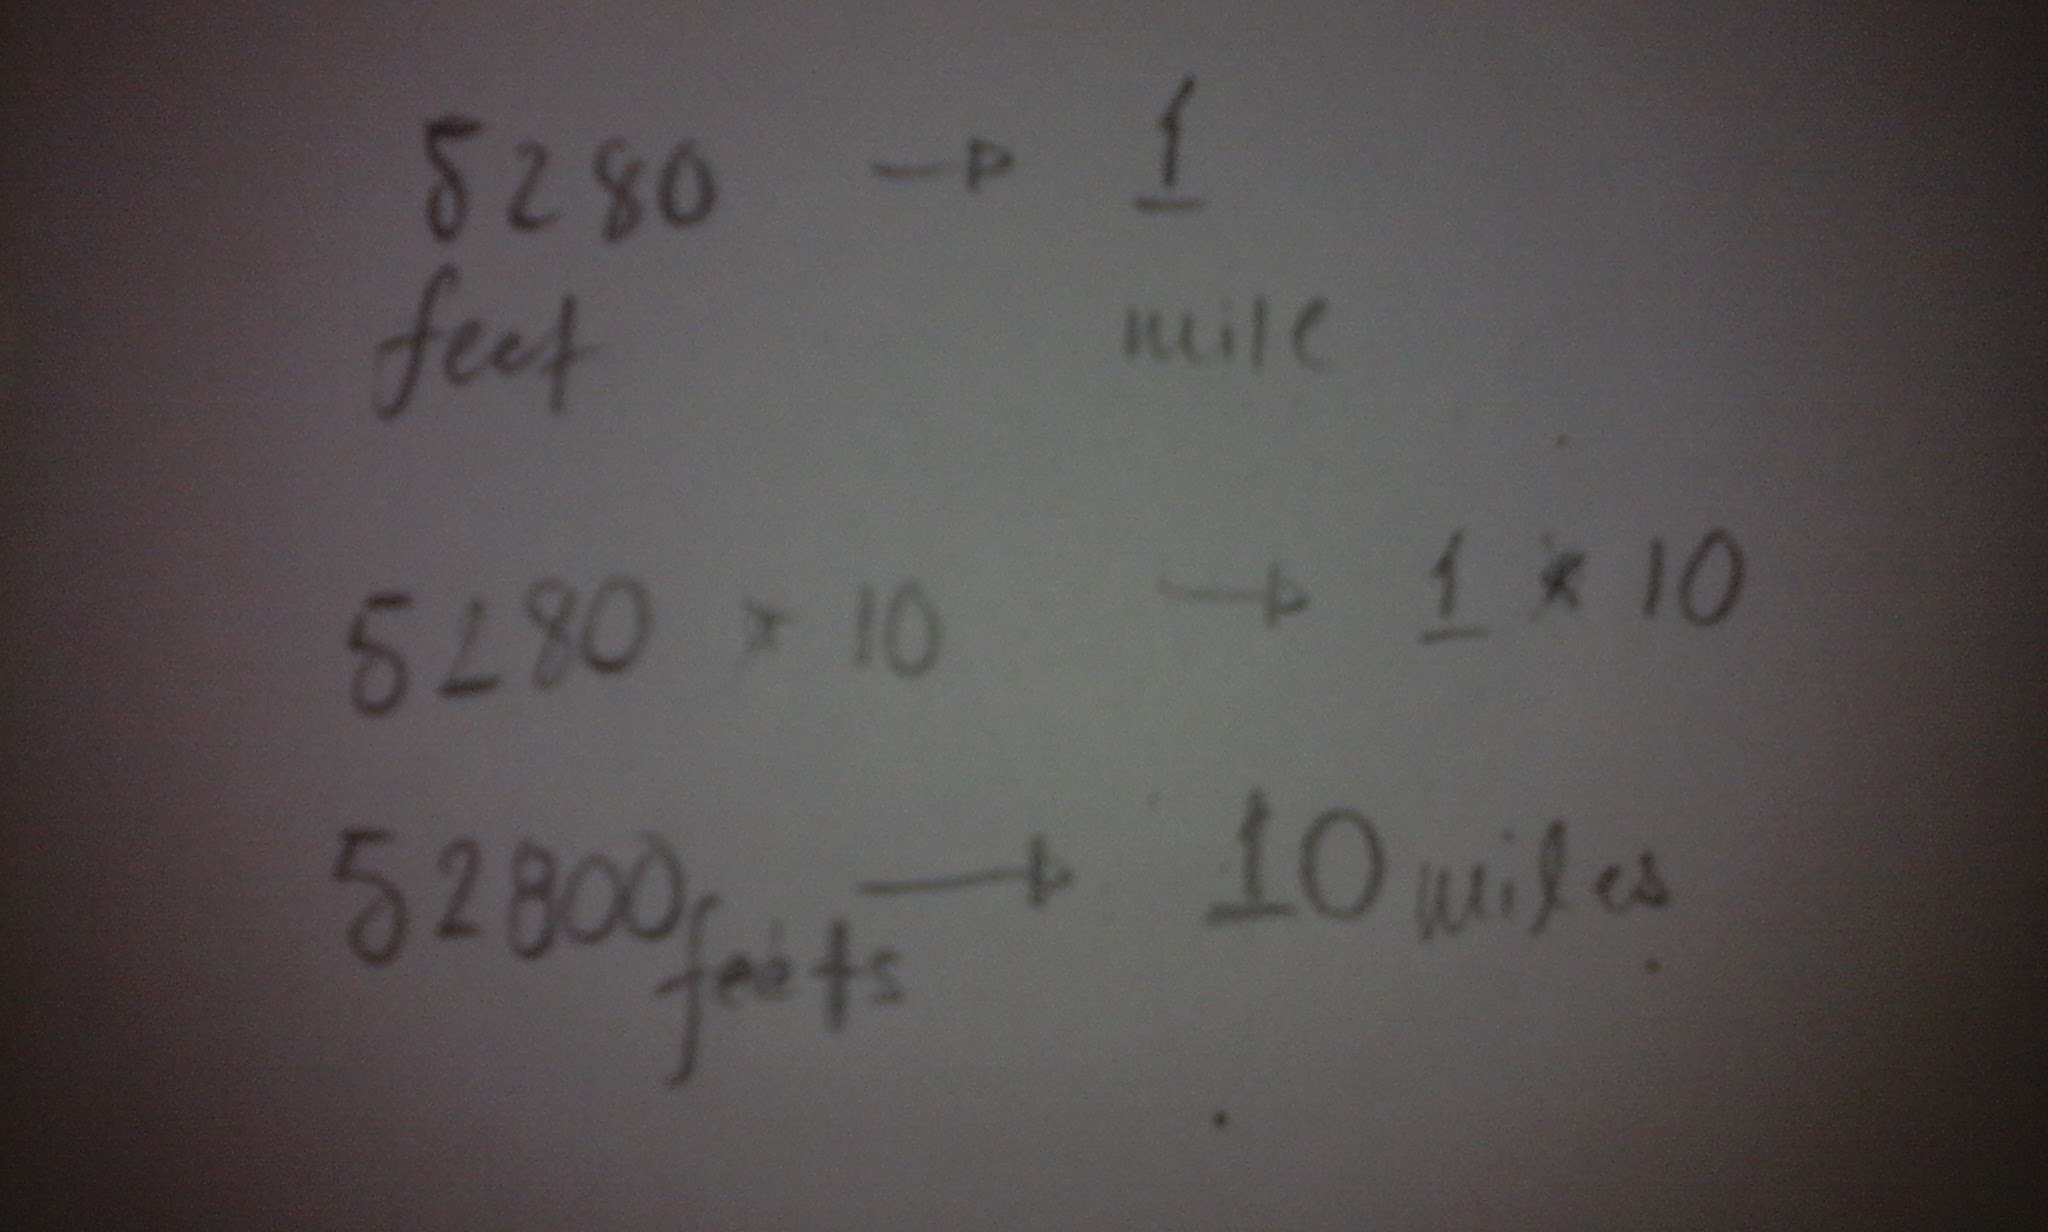 5280 → 1
feet mile
5280 * 10 → 1 * 10
52800 feets → 10 miles